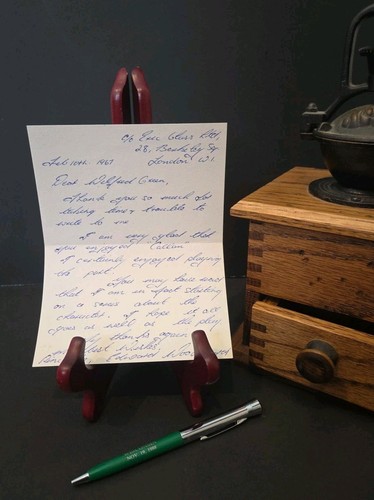 c/o Eric Glass Ltd,
28, Berkeley Sq
London W.1.
Feb 10th 1967
Dear Wilfred Green,
Thank you so much for
taking time & trouble to
write to me.
I am very glad that
you enjoyed "Callan"
I certainly enjoyed playing
the part.
You may have read
that I am in fact starting
on a series about the
character. I hope it all
goes as well as the play
thanks again
Best Wishes,
Edward Woodward
NOV. 19,